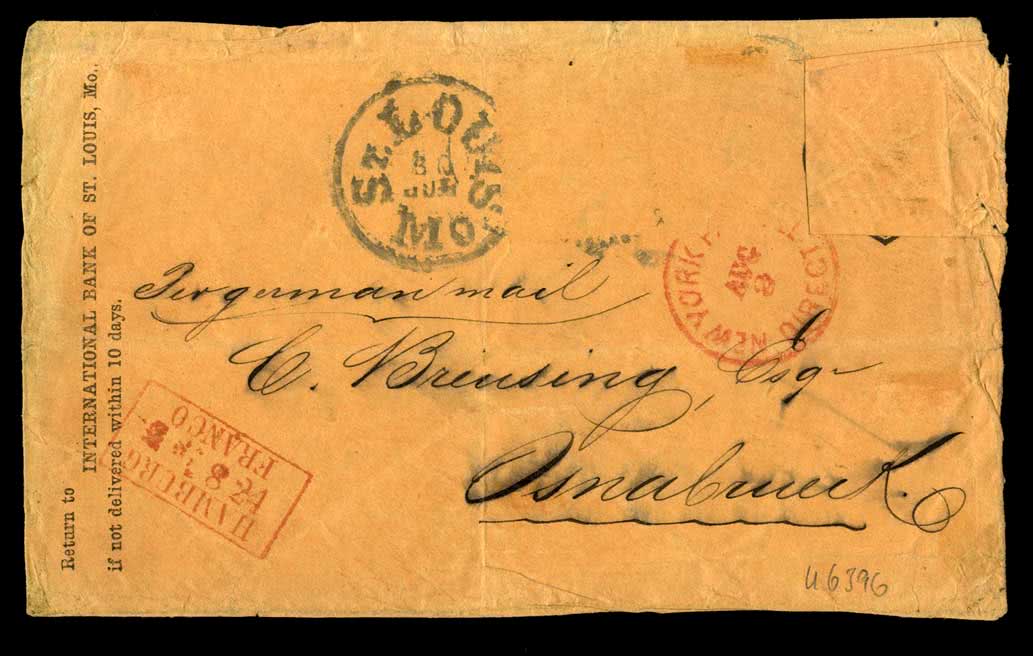 Return to
INTERNATIONAL BANK OF ST. LOUIS, Mo.,
if not delivered within 10 days.
ST. LOUIS
30
MO
Per german mail
C. Breusing, Esqr
Osnabrueck.
NEW YORK
DIRECT
AUG
HAMBURG
8
FRANCO
U6396